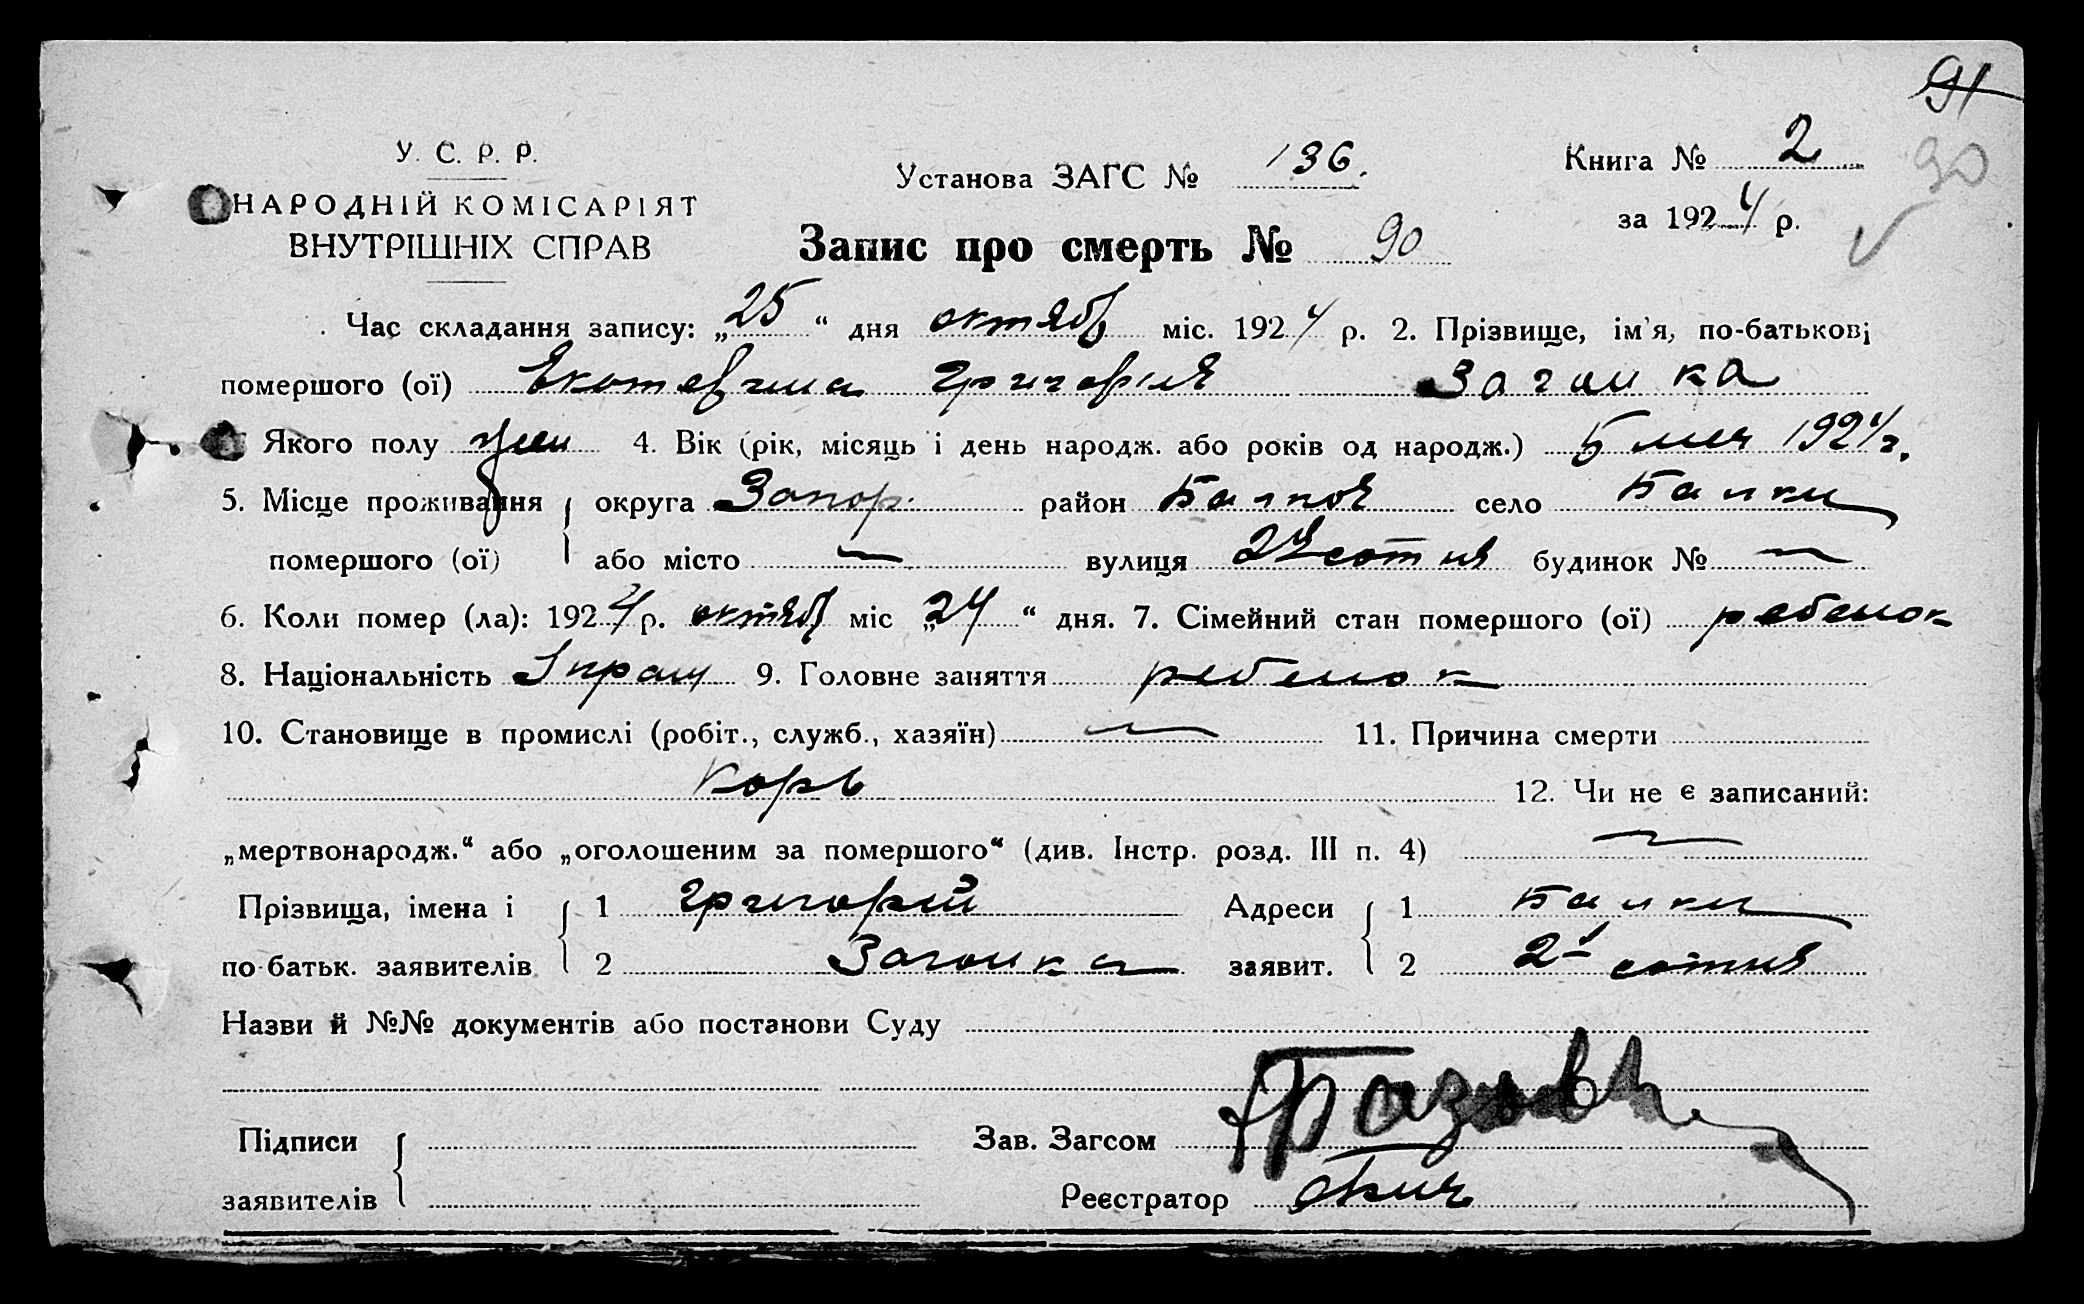 91
90
У. С. Р. Р.
НАРОДНІЙ КОМІСАРІЯТ
ВНУТРІШНІХ СПРАВ
Установа ЗАГС № 136.
Книга № 2
за 1924 р.
Запис про смерть № 90
Час складання запису: „25“ дня октяб міс. 1924 р. 2. Прізвище, ім'я, по-батькові
помершого (ої) Екатерина Григорія Загоика
Якого полу жен 4. Вік (рік, місяць і день народж. або років од народж.) 5 мця 1924 г.
5. Місце проживання округа Запор. район Балков село Балки
помершого (ої) або місто — вулиця 2я сотня будинок № —
6. Коли помер (ла): 1924 р. октяб міс „24“ дня. 7. Сімейний стан помершого (ої) ребенок
8. Національність Украи 9. Головне заняття ребенок
10. Становище в промислі (робіт., служб., хазяїн) — 11. Причина смерти
Корь 12. Чи не є записаний:
„мертвонародж.“ або „оголошеним за помершого“ (див. Інстр. розд. III п. 4) —
Прізвища, імена і 1 Григорий Адреси 1 Балки
по-батьк. заявителів 2 Загоика заявит. 2 2я сотня
Назви й №№ документів або постанови Суду
Підписи Зав. Загсом
заявителів Реєстратор